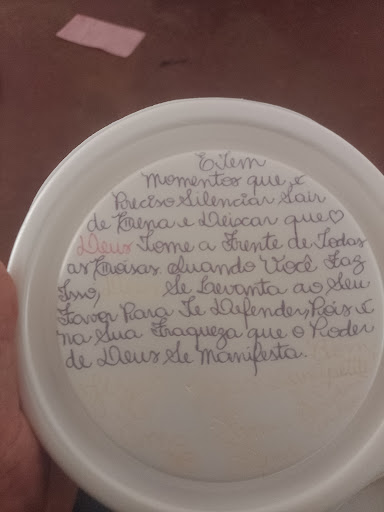 E Tem
Momentos que é
Preciso Silenciar Sair
de Kena e Deixar que♡
Deus Tome a Frente de Todas
as Koisas. Quando Você Faz
Isso, Se Levanta ao Seu
Favor Para Te Defender, Pois é
na Sua Fraqueza que o Poder
de Deus Se Manifesta.